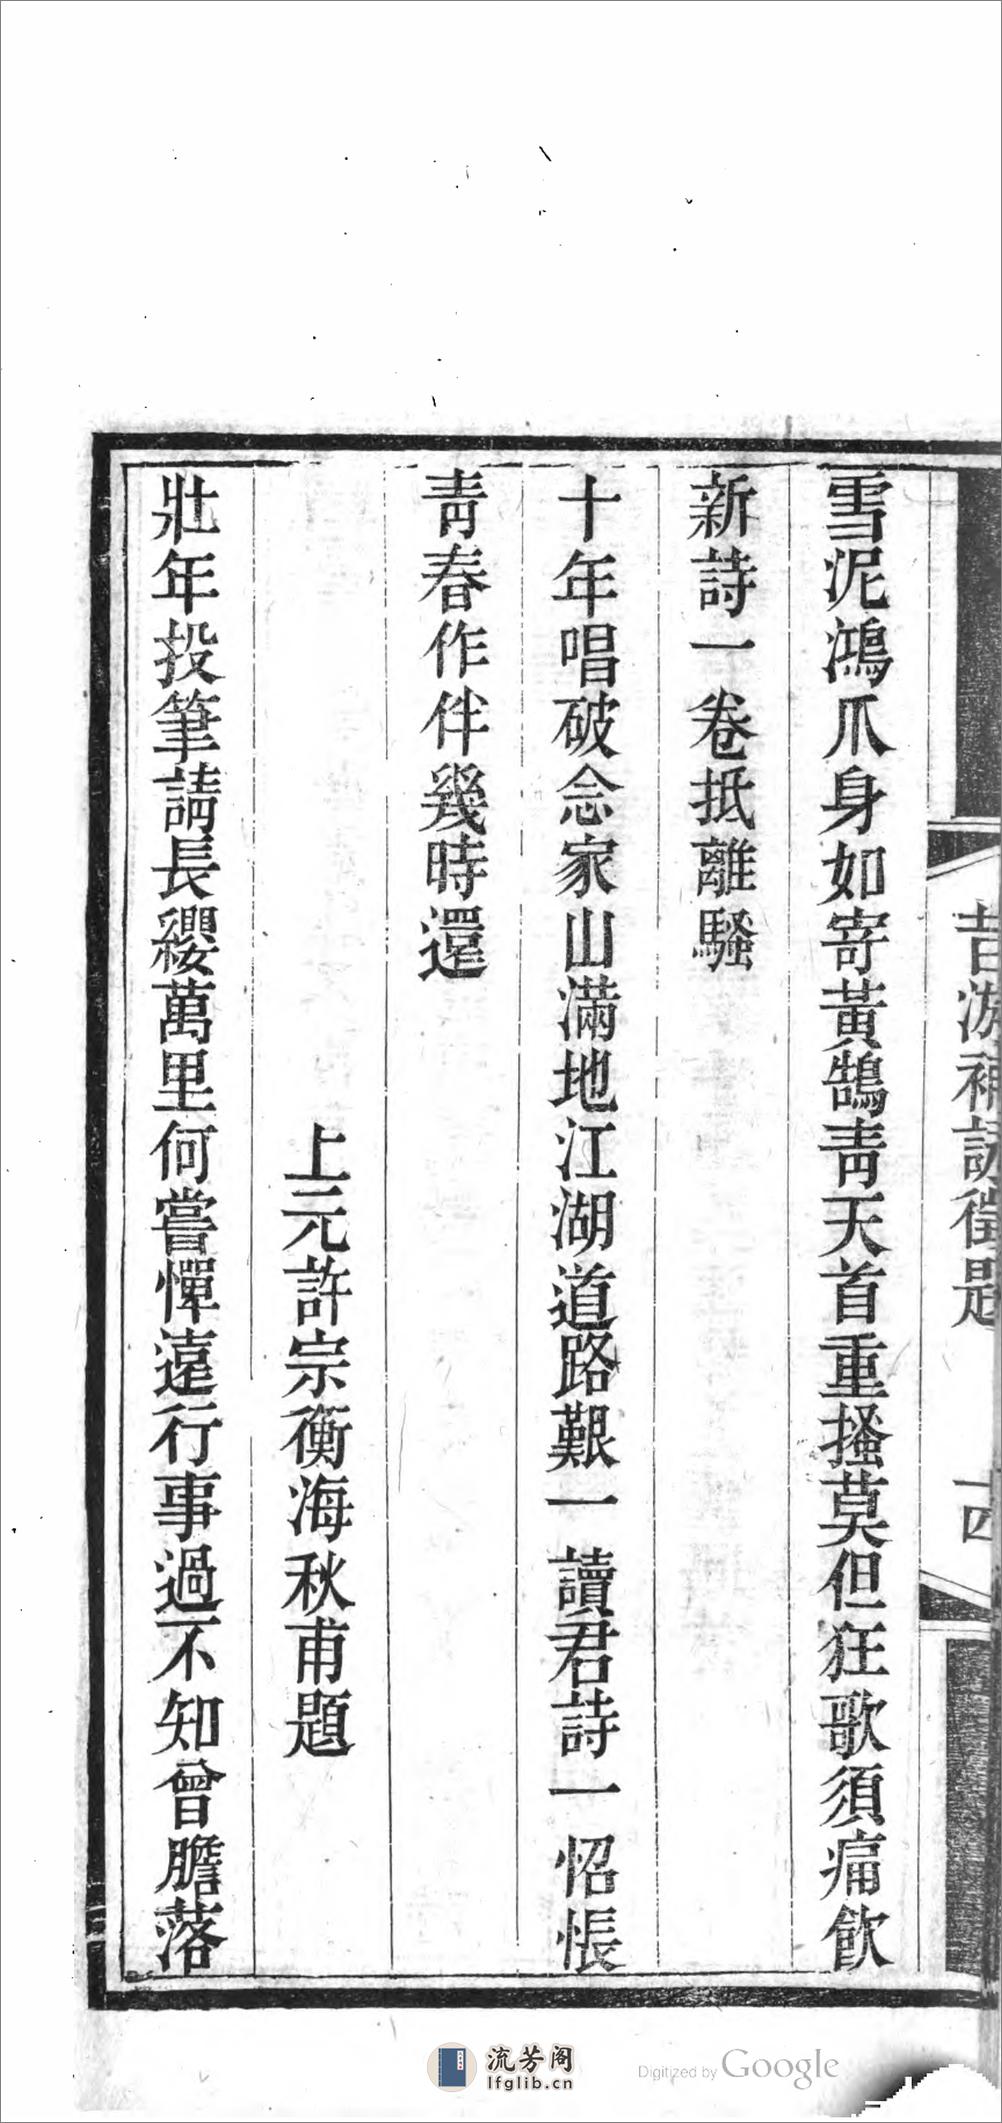 昔游補詠徵題
十四
雪泥鴻爪身如寄黃鵠靑天首重搔莫但狂歌須痛飮
新詩一卷抵離騷
十年唱破念家山滿地江湖道路艱一讀君詩一怊悵
靑春作伴幾時還
上元許宗衡海秋甫題
壯年投筆請長纓萬里何嘗憚遠行事過不知曾膽落
流芳阁
lfglib.cn
Digitized by Google